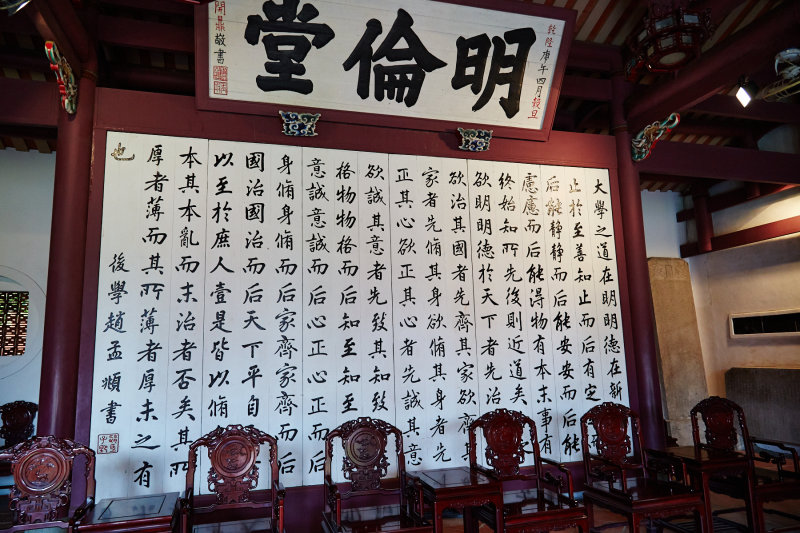 乾隆庚午四月穀旦
明倫堂
開鼎敬書
大學之道在明明德在新
止於至善知止而后有定
后能靜靜而后能安安而后能
慮慮而后能得物有本末事有
終始知所先後則近道矣
欲明明德於天下者先治
欲治其國者先齊其家欲
家者先脩其身欲脩其身者先
正其心欲正其心者先誠其意
欲誠其意者先致其知致
格物物格而后知至知至
意誠意誠而后心正心正而后
身脩身脩而后家齊家齊而后
國治國治而后天下平自
以至於庶人壹是皆以脩
本其本亂而末治者否矣其所
厚者薄而其所薄者厚未之有
後學趙孟頫書